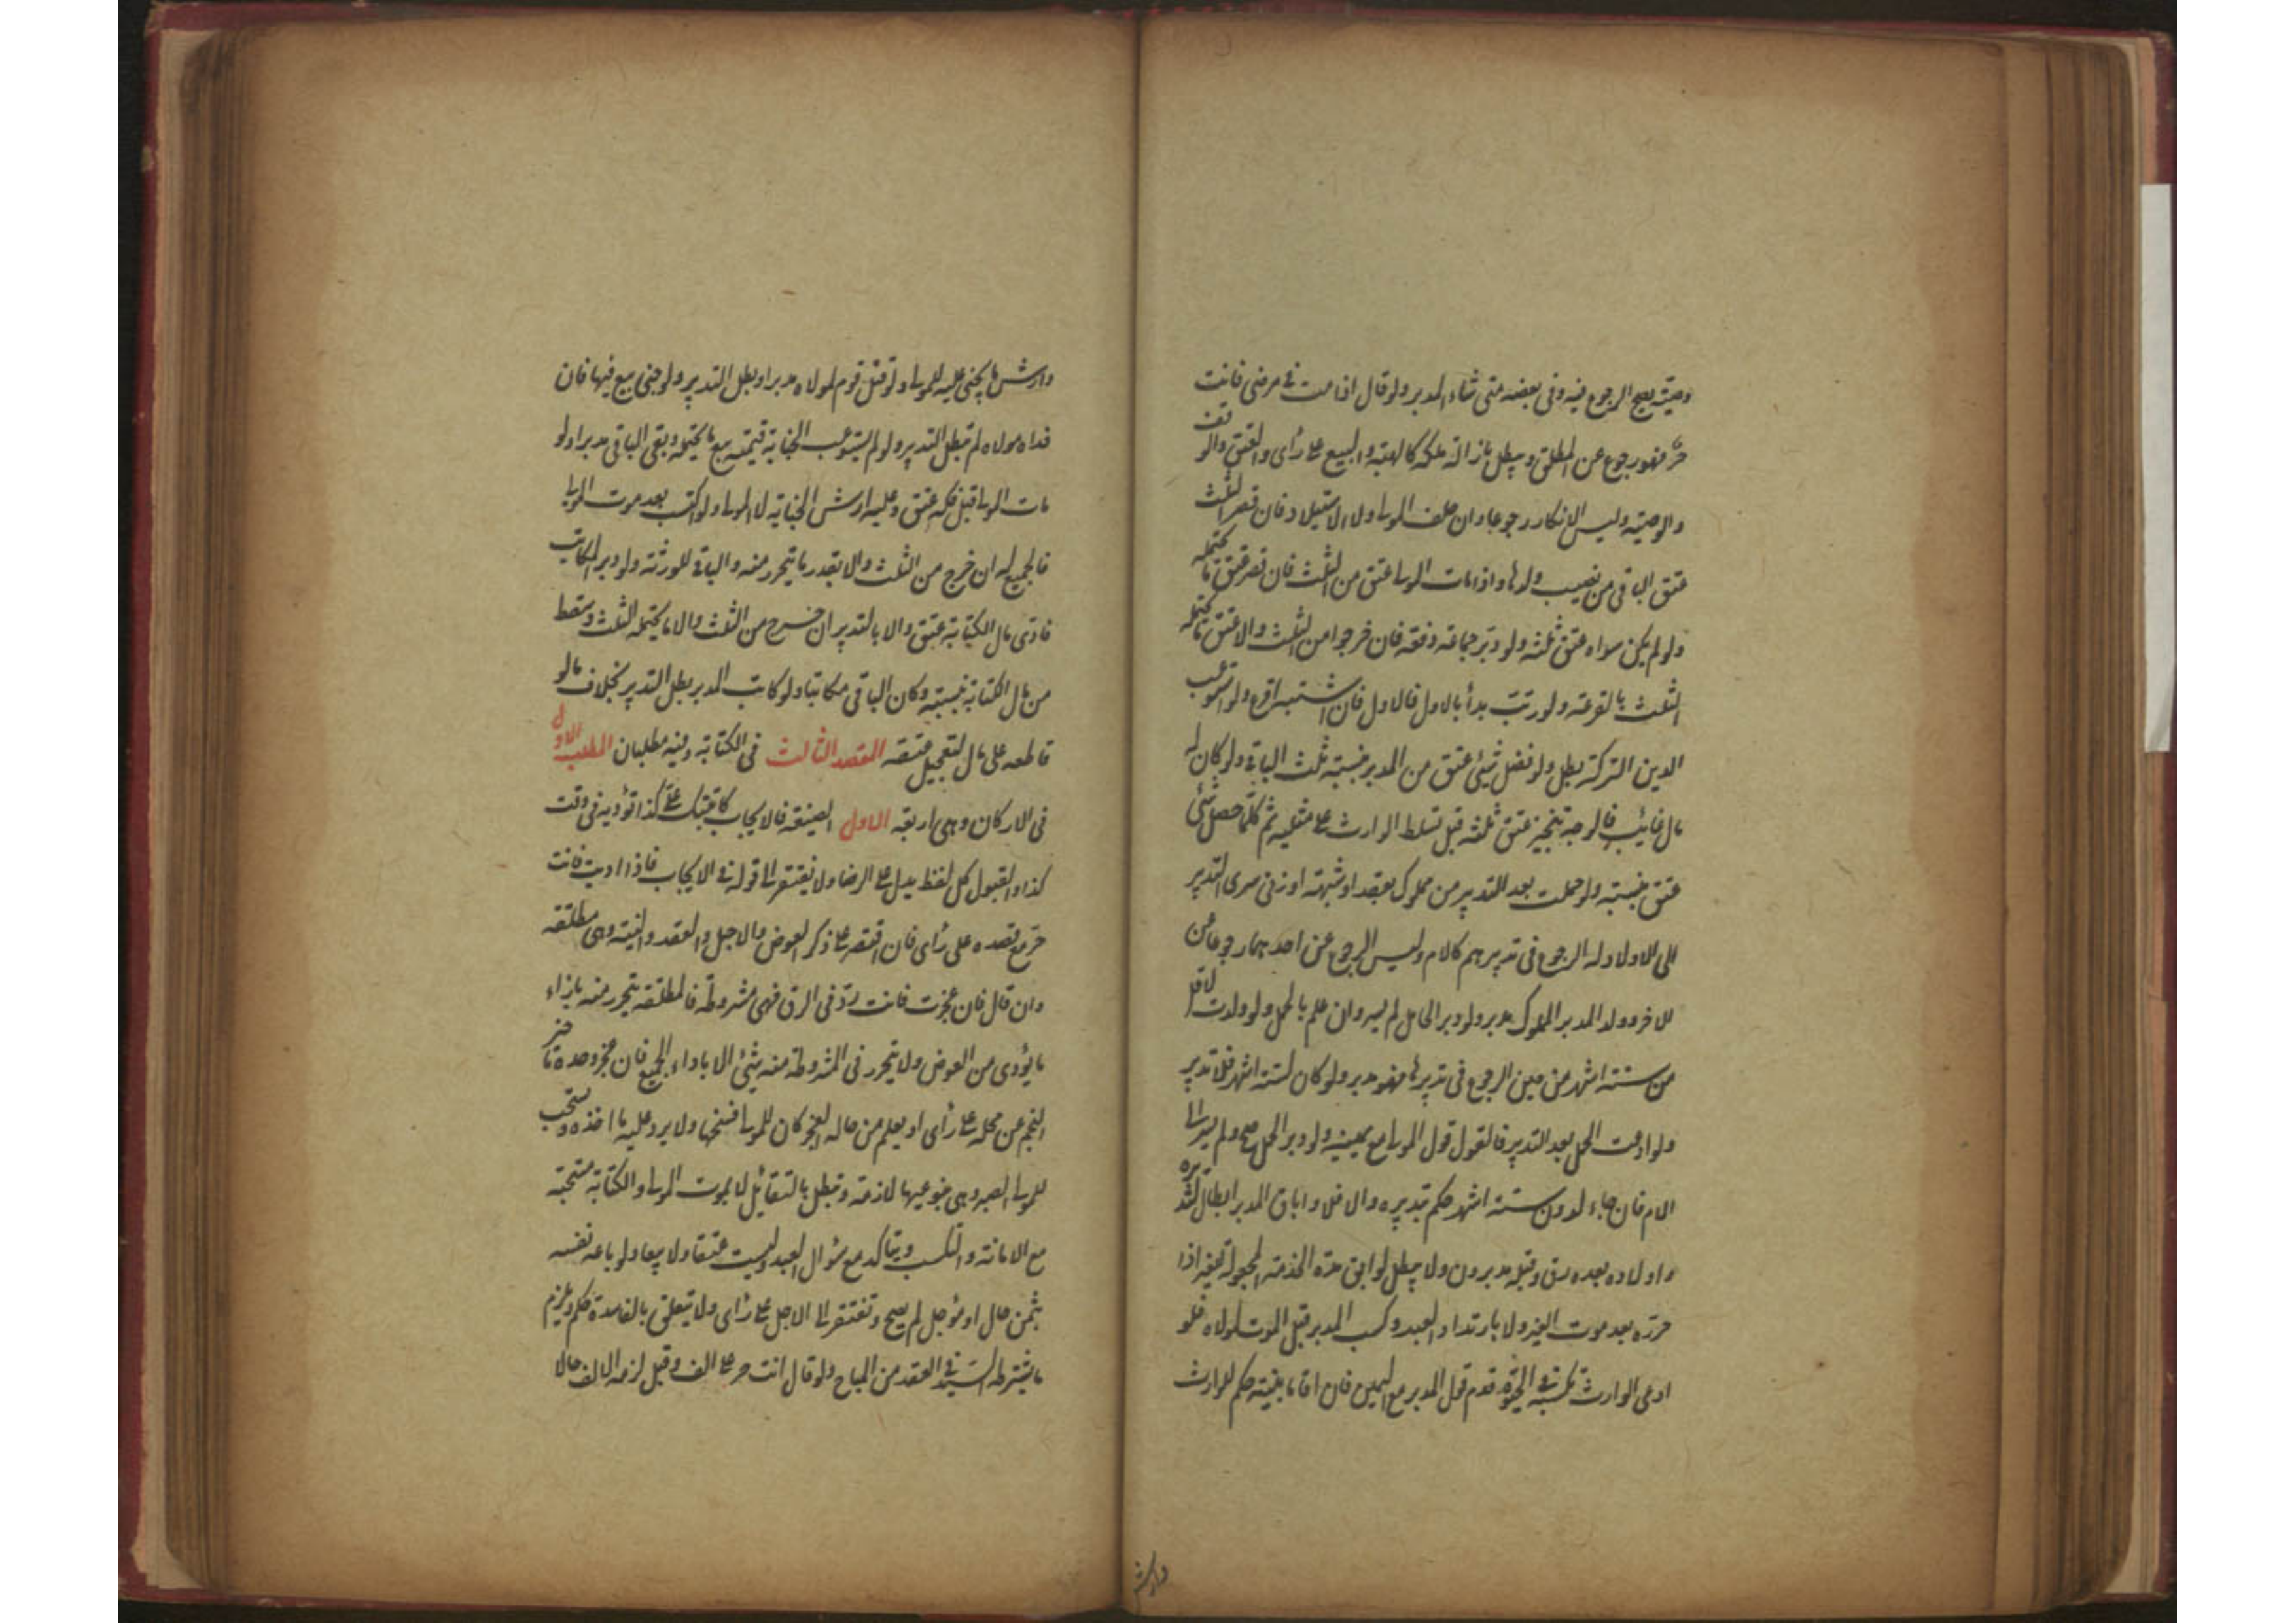 وصية يصح الرجوع فيه وفى بعضه متى شاء المدبر ولو قال اذا مت فى مرضى فانت
حرّ فهو رجوع عن المطلق ويبطل بازالة ملكه كالهبة والبيع على رأى والعتق والوقف
والوصية وليس الانكار رجوعا وان حلف المولى ولا الاستيلاد فان قصر الثلث
عتق الباقى من نصيب ولدها واذا مات المولى عتق من الثلث فان قصر عتق ما يحتمله
ولو لم يكن سواه عتق ثلثه ولو دبّر جماعة دفعة فان خرجوا من الثلث والا عتق ما يحتمله
الثلث بالقرعة ولو رتب بدأ بالاول فالاول فان اشتبه اقرع ولو استوعب
الدين التركة بطل ولو فضل شيئ عتق من المدبر بنسبة ثلث الباقى ولو كان له
مال غائب فالوجه تنجيز عتق ثلثه قبل تسلط الوارث على مثليه ثم كلما حصل شئ
عتق بنسبته ولو حملت بعد التدبير من مملوك بعقد او شبهة او زنى سرى التدبير
الى الاولاد وله الرجوع فى تدبيرهم كالام وليس الرجوع عن احدهما رجوعا عن
الاخر وولد المدبر المملوك مدبر ولو دبر الحامل لم يسر وان علم بالحمل ولو ولدت لاقل
من ستة اشهر من حين الرجوع فى تدبيرها فهو مدبر ولو كان لستة اشهر فلا تدبير
ولو ادعت الحمل بعد التدبير فالقول قول المولى مع يمينه ولو دبر الحمل صح ولم يسر الى
الام فان جاء لدون ستة اشهر حكم بتدبيره والا فلا واباق المدبر ابطال لتدبيره
واولاده بعده رق وقبله مدبرون ولا يبطل لو ابق مدة الخدمة المجعولة لغيره اذا
حرّره بعد موت الغير ولا بارتداد العبد وكسب المدبر قبل الموت لمولاه فلو
ادعى الوارث تكسبه فى الحيوة قدم قول المدبر مع اليمين فان اقاما بينة حكم للوارث
وارش
وارش ما يجنى عليه للمولى ولو قتل قوم لمولاه مدبرا وبطل التدبير ولو جنى بيع فيها فان
فداه مولاه لم تبطل التدبير ولو لم يستوعب الجناية قيمته بيع ما يحتمله وبقى الباقى مدبرا ولو
مات المولى قبل فكه عتق وعليه ارش الجناية لا المولى ولو اكتسب بعد موت المولى
فالجميع له ان خرج من الثلث والا بقدر ما يتحرر منه والباقى للورثة ولو دبر المكاتب
فادى مال الكتابة عتق والا بالتدبير ان خرج من الثلث والا ما يحتمله الثلث وسقط
من مال الكتابة بنسبته وكان الباقى مكاتبا ولو كاتب المدبر بطل التدبير بخلاف ما لو
قاطعه على مال لتعجيل عتقه المقصد الثالث فى الكتابة وفيه مطلبان المطلب الاول
فى الاركان وهى اربعة الاول الصيغة فالايجاب كاتبتك على كذا تؤديه فى وقت
كذا والقبول كل لفظ يدل على الرضا ولا يفتقر الى قوله فى الايجاب فاذا اديت فانت
حرّ مع قصده على رأى فان اقتصر على ذكر العوض والاجل والعقد والنية وهى مطلقة
وان قال فان عجزت فانت ردّ فى الرق فهى مشروطة فالمطلقة يتحرر منه بازاء
ما يؤدى من العوض ولا يتحرر فى المشروطة منه شيئ الا باداء الجميع فان عجز وحده تاخير
النجم عن محله على رأى او يعلم من حاله العجز كان للمولى فسخها ولا يرد عليه ما اخذه ويستحب
للمولى الصبر وهى بنوعيها لازمة وتبطل بالتقائل لا بموت المولى والكتابة مستحبة
مع الامانة والتكسب ويتاكد مع سؤال العبد وليست عتقا ولا بيعا ولو باعه نفسه
بثمن حال او مؤجل لم يصح وتفتقر الى الاجل على رأى ولا يتعلق بالفاسدة حكم ويلزم
ما يشترطه السيّد فى العقد من المباح ولو قال انت حر على الف وقبل لزمه الالف حالا